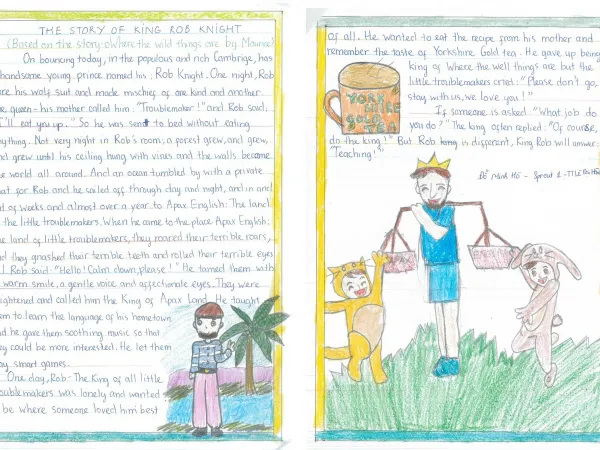 THE STORY OF KING ROB KNIGHT
(Based on the story: Where the wild things are by Maurice
On bouncing today, in the populous and rich Cambrige, has
handsome young prince named his: Rob Knight. One night, Rob
his wolf suit and made mischief of one kind and another
queen - his mother called him: "Troublemaker!" and Rob said,
I'll eat you up." So he was sent to bed without eating
anything. Not very night in Rob's room; a forest grew, and grew,
and grew until his ceiling hung with vines and the walls became
the world all around. And an ocean tumbled by with a private
boat for Rob and he sailed off through day and night, and in and
out of weeks and almost over a year to Apax English: The land
of the little troublemakers. When he came to the place Apax English:
the land of little troublemakers, they roared their terrible roars,
and they gnashed their terrible teeth and rolled their terrible eyes
Rob said: "Hello! Calm down, please!" He tamed them with
warm smile, a gentle voice and affectionate eyes. They were
frightened and called him the King of Apax Land. He taught
them to learn the language of his hometown
and he gave them soothing music so that
they could be more interested. He let them
play smart games.
One day, Rob: The King of all little
troublemakers was lonely and wanted
to be where someone loved him best
of all. He wanted to eat the recipe from his mother and
remember the taste of Yorkshire Gold tea. He gave up being
king of Where the well things are but the
little troublemakers cried: "Please don't go,
stay with us, we love you!"
If someone is asked: "What job do
you do?" The king often replied: "Of course,
do the king!" But Rob king is different, King Rob will answer:
"Teaching!".
YORK
SHIRE
GOLD
TEA